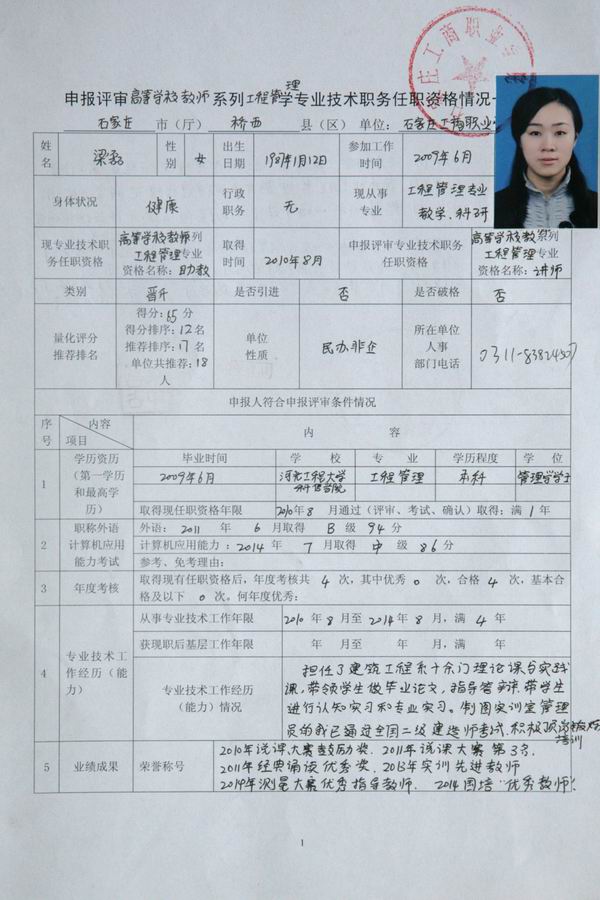 庄工商职业
申报评审高等学校教师系列工程管理学专业技术职务任职资格情况一
石家庄 市（厅） 桥西 县（区） 单位：石家庄工商职业
姓名 梁磊 性别 女 出生日期 1987年1月12日 参加工作时间 2009年6月
身体状况 健康 行政职务 无 现从事专业 工程管理专业教学、科研
现专业技术职务任职资格 高等学校教师系列工程管理专业资格名称：助教 取得时间 2010年8月 申报评审专业技术职务任职资格 高等学校教师系列工程管理专业资格名称：讲师
类别 晋升 是否引进 否 是否破格 否
量化评分推荐排名 得分：65分 得分排序：12名 推荐排序：17名 单位共推荐：18人 单位性质 民办非企 所在单位人事部门电话 0311-83824507
申报人符合申报评审条件情况
序号 内容 项目 内 容
1 学历资历（第一学历和最高学历） 毕业时间 学 校 专 业 学历程度 学 位
2009年6月 河北工程大学科信学院 工程管理 本科 管理学学士
取得现任职资格年限 2010年8月通过（评审、考试、确认）取得；满1年
2 职称外语计算机应用能力考试 外语：2011 年 6 月取得 B 级 94 分
计算机应用能力：2014 年 7 月取得 中 级 86 分
参考、免考理由：
3 年度考核 取得现有任职资格后，年度考核共 4 次，其中优秀 0 次，合格 4 次，基本合
格及以下 0 次。何年度优秀：
4 专业技术工作经历（能力） 从事专业技术工作年限 2010 年 8 月至 2014 年 8 月，满 4 年
获现职后基层工作年限 年 月至 年 月，满 年
专业技术工作经历（能力）情况 担任了建筑工程系十余门理论课与实践
课，带领学生做毕业论文，指导答辩，带学生
进行认知实习和专业实习。制图实训室管理
员的我已通过全国二级建造师考试，积极
培训
5 业绩成果 荣誉称号 2010年说课大赛鼓励奖、2011年说课大赛第3名、
2011年经典诵读优秀奖、2013年实训先进教师
2014年测量大赛优秀指导教师、2014国培“优秀教师”.
1